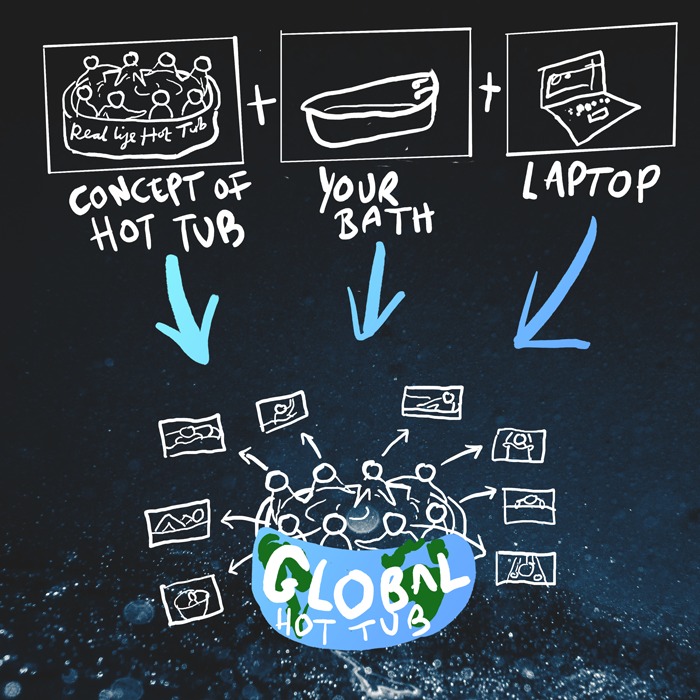 Real life Hot Tub
+
+
CONCEPT OF
HOT TUB
YOUR
BATH
LAPTOP
GLOBAL
HOT TUB